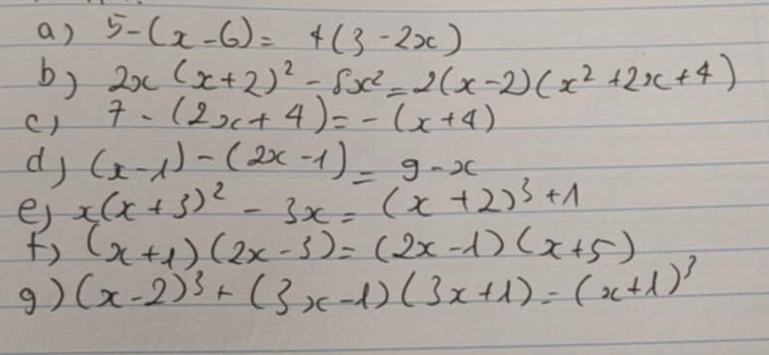 a) 5-(x-6)= 4(3-2x)
b) 2x(x+2)² - 8x² = 2(x-2)(x²+2x+4)
c) 7-(2x+4)=-(x+4)
d) (x-1)-(2x-1)= 9-x
e) x(x+3)² - 3x = (x+2)³+1
f) (x+1)(2x-3)=(2x-1)(x+5)
g) (x-2)³+(3x-1)(3x+1)=(x+1)³